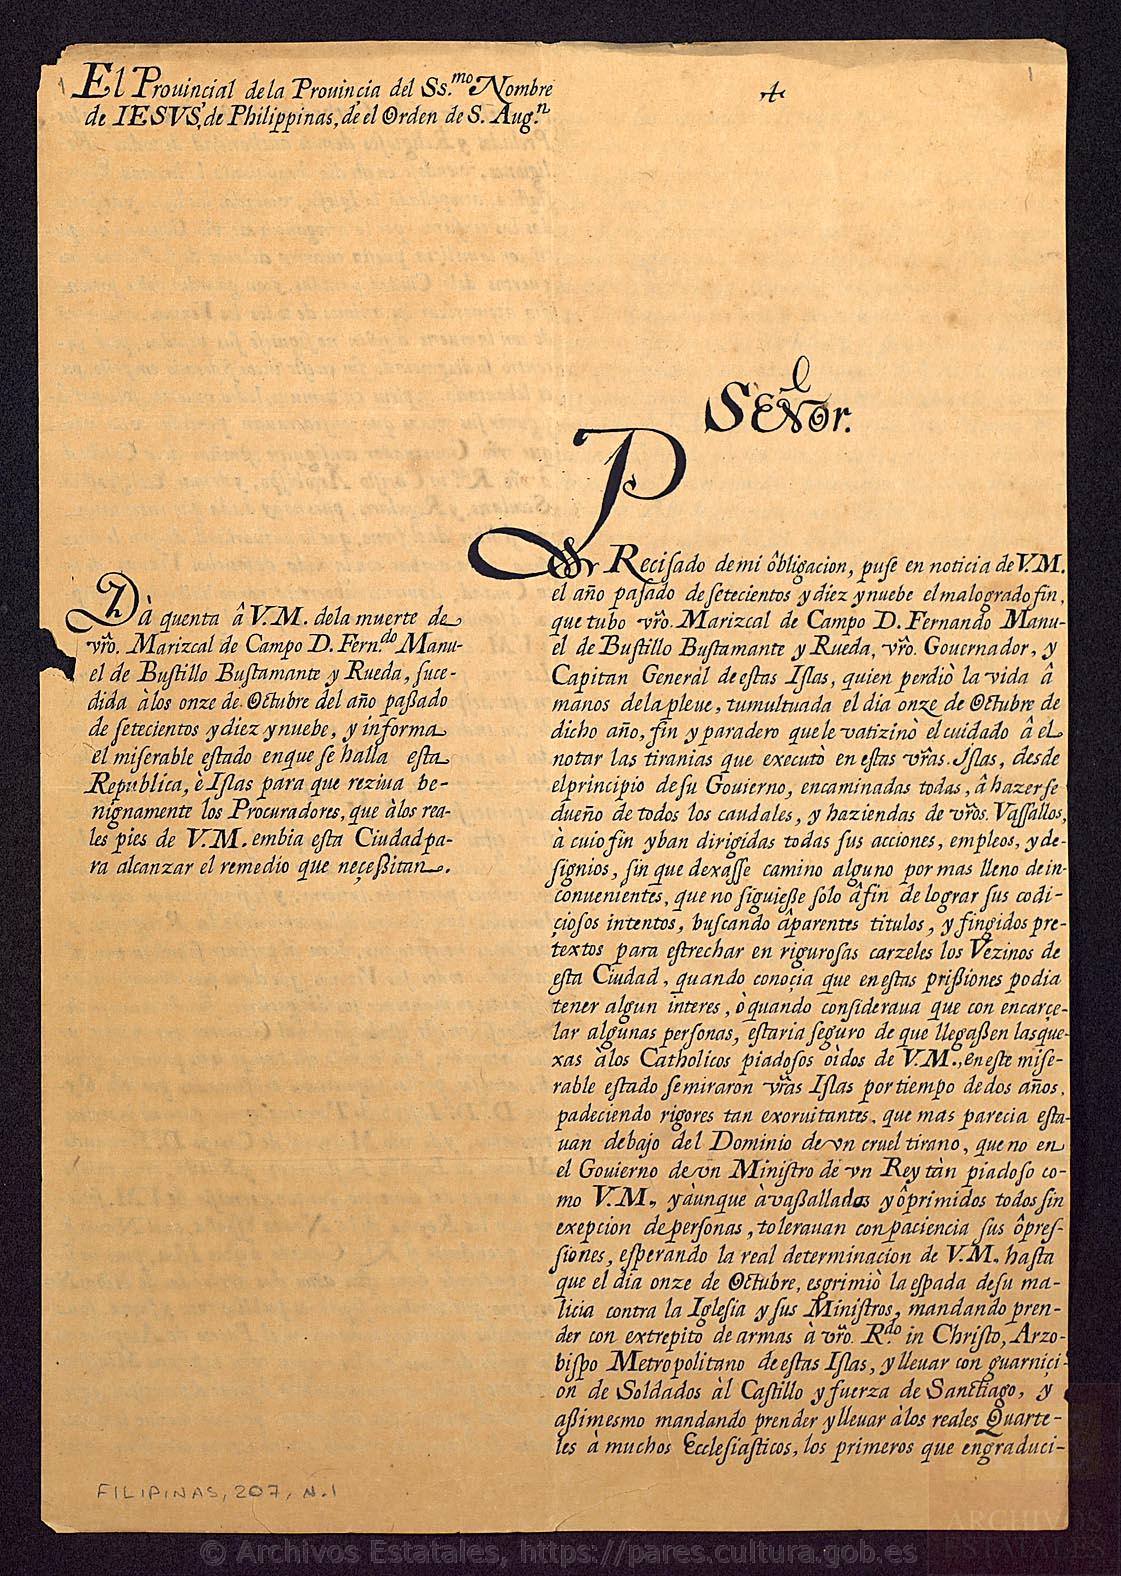 El Prouincial dela Prouincia del Ss.mo Nombre
de IESVS, de Philippinas, de el Orden de S. Aug.n
1
SEÑOr.
Dà quenta â V.M. dela muerte de
vrõ. Marizcal de Campo D. Fern.do Manu-
el de Buſtillo Buſtamante y Rueda, ſuce-
dida àlos onze de Octubre del año paßado
de ſetecientos y diez y nuebe, y informa
el miſerable eſtado en que ſe halla eſta
Republica, è Iſlas para que reziua be-
nignamente los Procuradores, que àlos rea-
les pies de V.M. embia eſta Ciudad pa-
ra alcanzar el remedio que neçeßitan.
Reciſado de mi ôbligacion, puſe en noticia de V.M.
el año paſado de ſetecientos y diez y nuebe el malogrado fin,
que tubo vrõ. Marizcal de Campo D. Fernando Manu-
el de Buſtillo Buſtamante y Rueda, vrõ. Gouernador, y
Capitan General de eſtas Iſlas, quien perdiò la vida â
manos dela pleue, tumultuada el dia onze de Octubre de
dicho año, fin y paradero que le vatizinò el cuidado â el
notar las tiranias que executò en eſtas vrãs. Iſlas, desde
el principio de ſu Gouierno, encaminadas todas, â hazerſe
dueño de todos los caudales, y haziendas de vrõs. Vaſſallos,
à cuio fin yban dirigidas todas ſus acciones, empleos, y de-
ſignios, ſin que dexaſſe camino alguno por mas lleno de in-
conuenientes, que no ſiguieße ſolo âfin de lograr ſus codi-
çioſos intentos, buſcando âparentes titulos, y fingidos pre-
textos para eſtrechar en riguroſas carzeles los Vezinos de
eſta Ciudad, quando conoçia que en eſtas prißiones podia
tener algun interes, ò quando conſideraua que con encarçe-
lar algunas perſonas, eſtaria ſeguro de que llegaßen las que-
xas àlos Catholicos piadoſos oìdos de V.M., en eſte miſe-
rable eſtado ſe miraron vrãs Iſlas por tiempo de dos años,
padeciendo rigores tan exoruitantes, que mas parecia eſta-
uan debajo del Dominio de vn cruel tirano, que no en
el Gouierno de vn Miniſtro de vn Rey tàn piadoſo co-
mo V.M., y àunque àvaßallados y ôprimidos todos ſin
exepcion de perſonas, tolerauan con paciencia ſus ôpreſ-
ſiones, eſperando la real determinacion de V.M. haſta
que el dia onze de Octubre, esgrimiò la eſpada de ſu ma-
licia contra la Igleſia y ſus Miniſtros, mandando pren-
der con extrepito de armas à vrõ. R.do in Chriſto, Arzo-
biſpo Metropolitano de eſtas Iſlas, y lleuar con guarniçi-
on de Soldados àl Caſtillo y fuerza de Sanctiago, y
aßimesmo mandando prender y lleuar àlos reales Quarte-
les à muchos Eccleſiaſticos, los primeros que en graduci-
FILIPINAS, 207, N.1
ARCHIVOS
ESTATALES
© Archivos Estatales, https://pares.cultura.gob.es